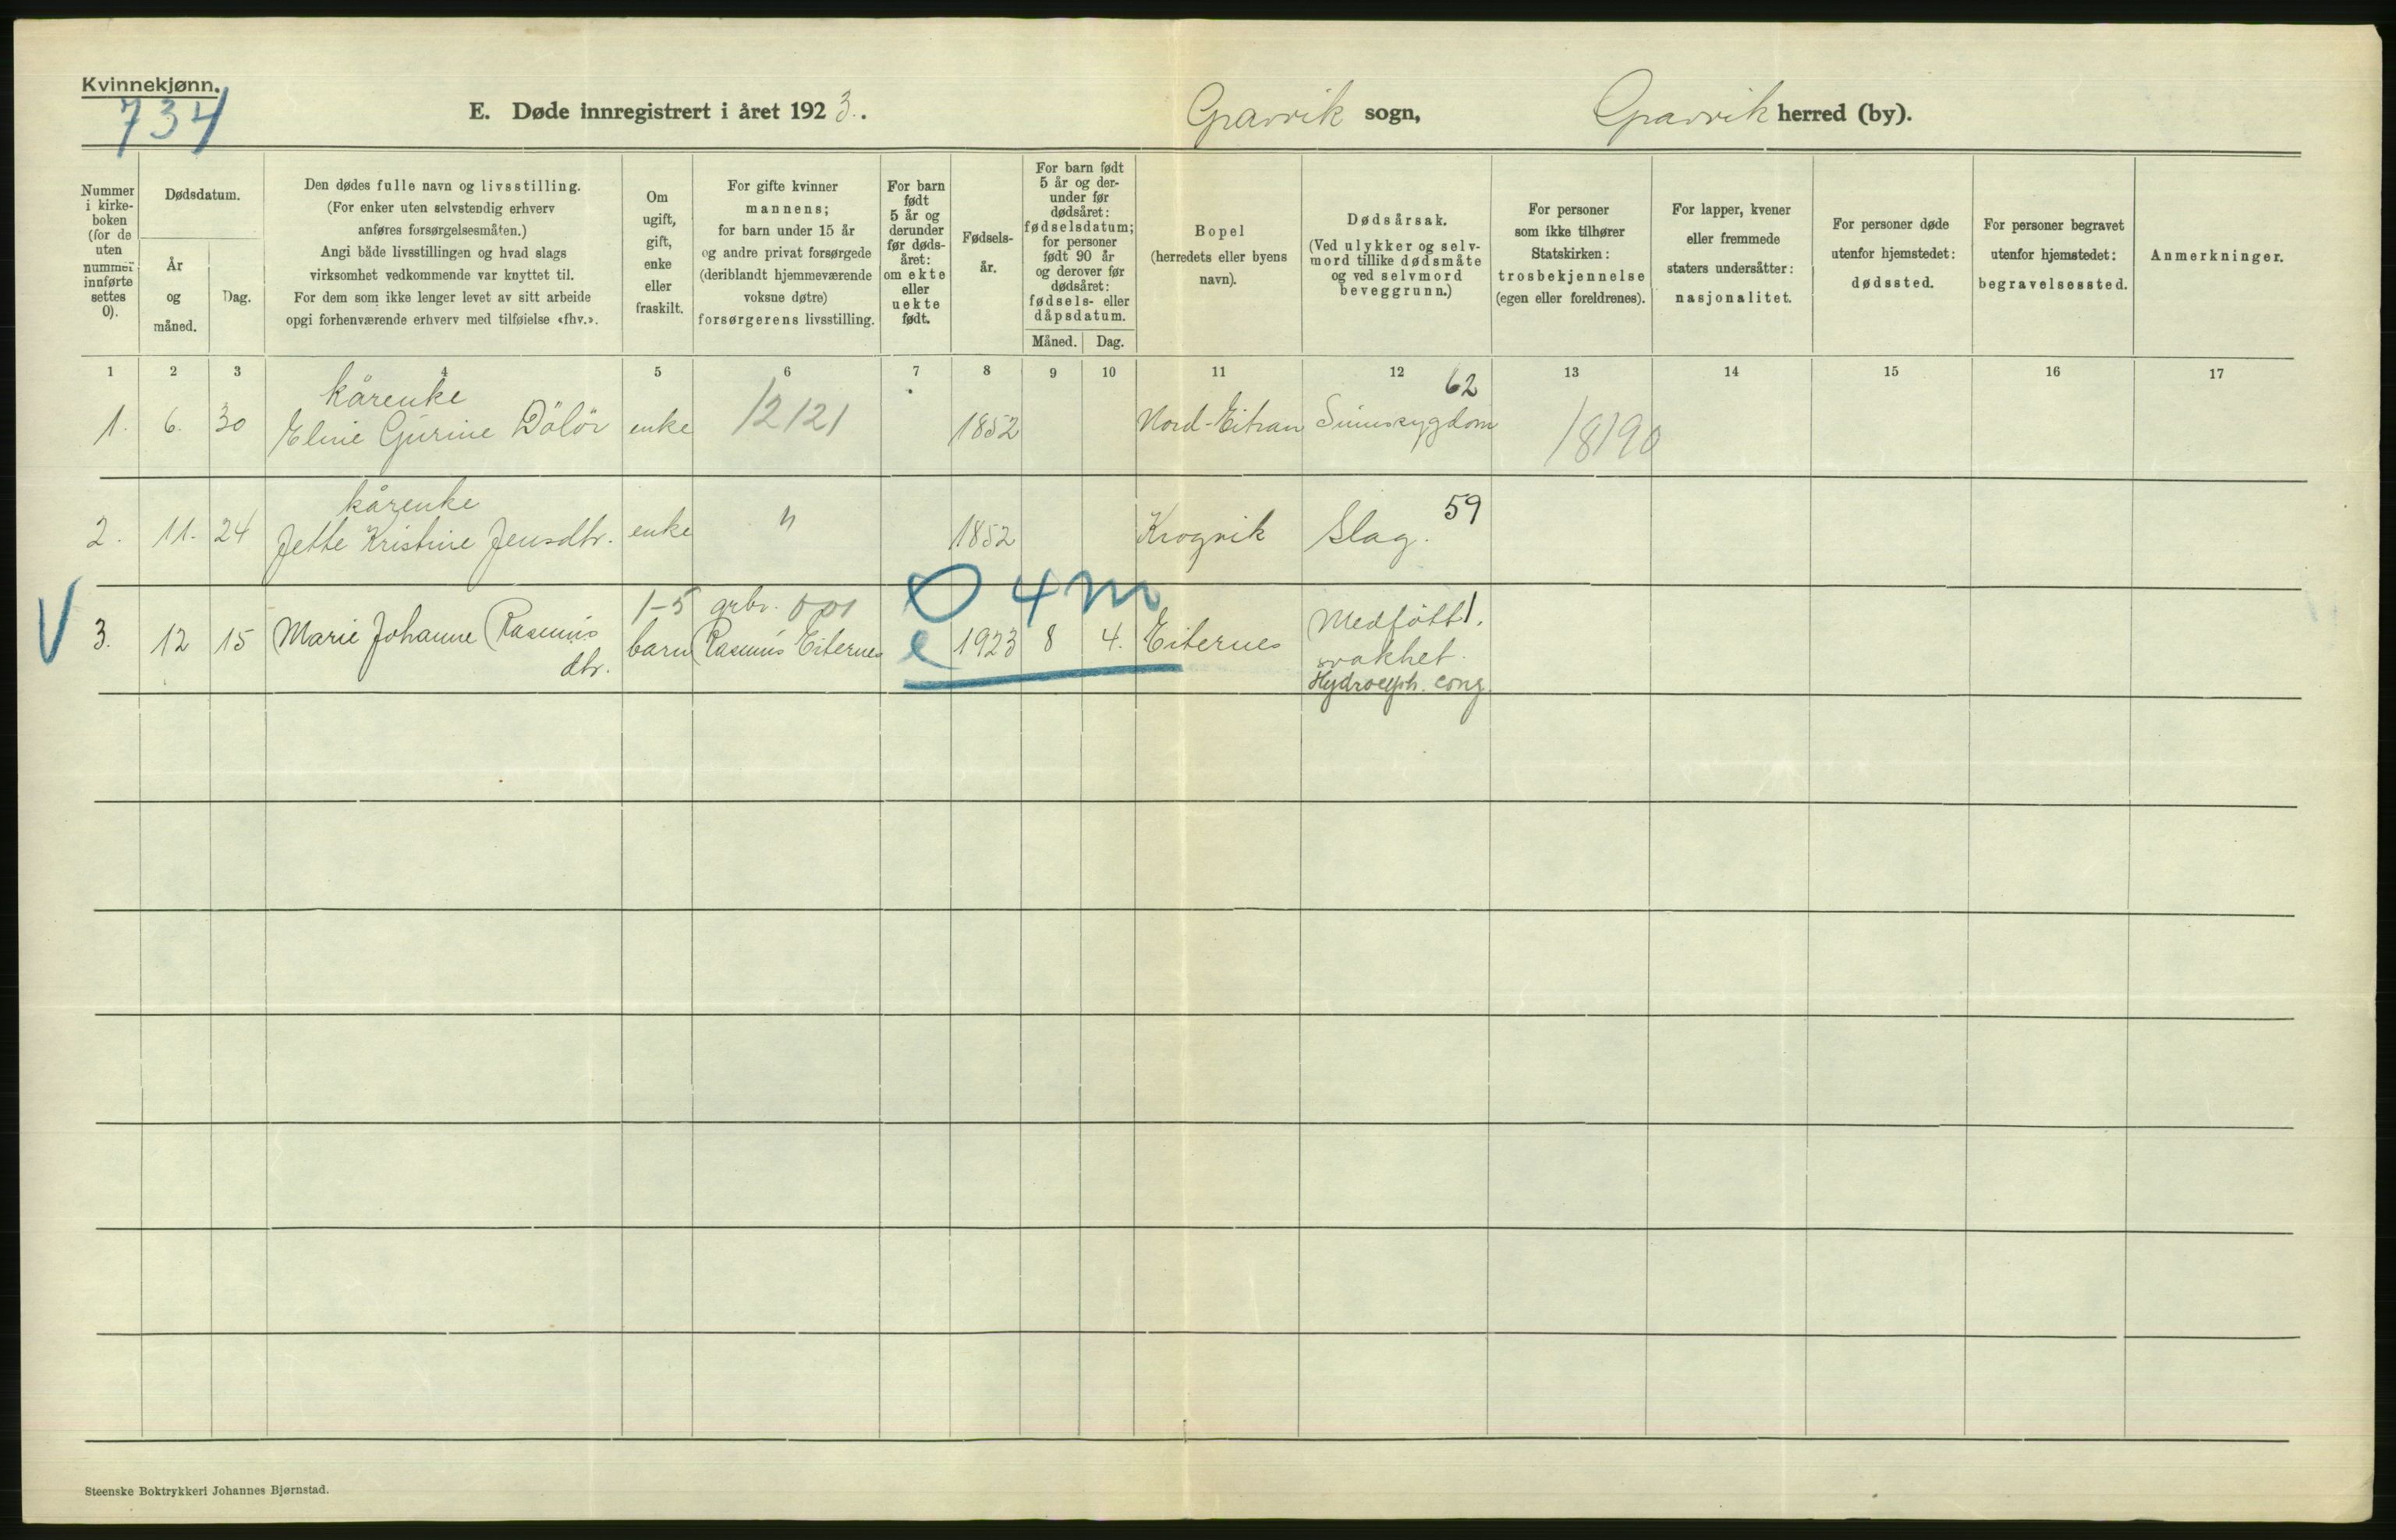 Kvinnekjønn.
734
E. Døde innregistrert i året 1923.
Gravvik sogn,
Gravvik herred (by).
Nummer i kirke-boken (for de uten nummer innførte settes 0).
Dødsdatum.
År og måned.
Dag.
Den dødes fulle navn og livsstilling.
(For enker uten selvstendig erhverv
anføres forsørgelsesmåten.)
Angi både livsstillingen og hvad slags
virksomhet vedkommende var knyttet til.
For dem som ikke lenger levet av sitt arbeide
opgi forhenværende erhverv med tilføielse «fhv.».
Om
ugift,
gift,
enke
eller
fraskilt.
For gifte kvinner
mannens;
for barn under 15 år
og andre privat forsørgede
(deriblandt hjemmeværende
voksne døtre)
forsørgerens livsstilling.
For barn
født
5 år og
derunder
før døds-
året:
om ekte
eller
uekte
født.
Fødsels-
år.
For barn født
5 år og der-
under før
dødsåret:
fødselsdatum;
for personer
født 90 år
og derover før
dødsåret:
fødsels- eller
dåpsdatum.
Måned. Dag.
Bopel
(herredets eller byens
navn).
Dødsårsak.
(Ved ulykker og selv-
mord tillike dødsmåte
og ved selvmord
beveggrunn.)
For personer
som ikke tilhører
Statskirken:
trosbekjennelse
(egen eller foreldrenes).
For lapper, kvener
eller fremmede
staters undersåtter:
nasjonalitet.
For personer døde
utenfor hjemstedet:
dødssted.
For personer begravet
utenfor hjemstedet:
begravelsessted.
Anmerkninger.
1 2 3 4 5 6 7 8 9 10 11 12 13 14 15 16 17
kårenke 62
1. 6. 30 Eline Gurine Dölör enke 12121 1852 Nord-Eitran Sinnssygdom 18190
kårenke 59
2. 11. 24 Jette Kristine Jensdtr. enke " 1852 Krogvik Slag.
V 1-5 grbr. 0 4 m Medfött 1.
3. 12 15 Marie Johanne Rasmus barn Rasmus Eiternes e 1923 8 4. Eiternes svakhet.
dtr. Hydroceph. cong.
Steenske Boktrykkeri Johannes Bjørnstad.